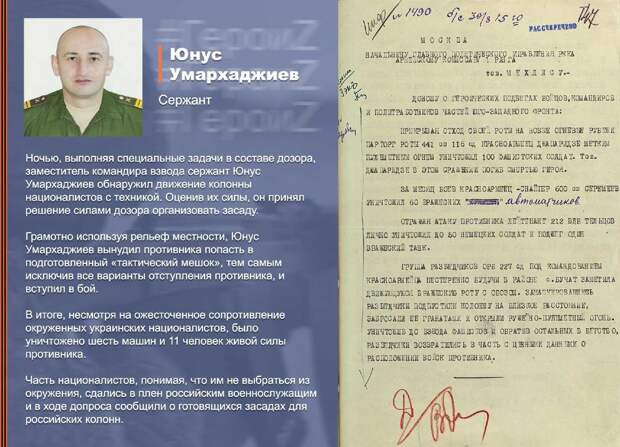 #ГероиZ
Юнус
Умархаджиев
Сержант
Ночью, выполняя специальные задачи в составе дозора,
заместитель командира взвода сержант Юнус
Умархаджиев обнаружил движение колонны
националистов с техникой. Оценив их силы, он принял
решение силами дозора организовать засаду.
Грамотно используя рельеф местности, Юнус
Умархаджиев вынудил противника попасть в
подготовленный «тактический мешок», тем самым
исключив все варианты отступления противника, и
вступил в бой.
В итоге, несмотря на ожесточенное сопротивление
окруженных украинских националистов, было
уничтожено шесть машин и 11 человек живой силы
противника.
Часть националистов, понимая, что им не выбраться из
окружения, сдались в плен российским военнослужащим
и в ходе допроса сообщили о готовящихся засадах для
российских колонн.
№ 1490
РАССЕКРЕЧЕНО
МОСКВА
НАЧАЛЬНИКУ ГЛАВНОГО ПОЛИТИЧЕСКОГО УПРАВЛЕНИЯ РККА
АРМЕЙСКОМУ КОМИССАРУ 1 РАНГА
тов. МЕХЛИСУ.-
ДОНОШУ О ГЕРОИЧЕСКИХ ПОДВИГАХ БОЙЦОВ, КОМАНДИРОВ
И ПОЛИТРАБОТНИКОВ ЧАСТЕЙ ЮГО-ЗАПАДНОГО ФРОНТА:
ПРИКРЫВАЯ ОТХОД СВОЕЙ РОТЫ НА НОВЫЕ ОГНЕВЫЕ РУБЕЖИ
ПАРТОРГ РОТЫ 441 СП 116 СД КРАСНОАРМЕЕЦ ДЖАПАРИДЗЕ МЕТКИМ
ПУЛЕМЕТНЫМ ОГНЕМ УНИЧТОЖИЛ 100 ФАШИСТСКИХ СОЛДАТ. Тов.
ДЖАПАРИДЗЕ В ЭТОМ СРАЖЕНИИ ПОГИБ СМЕРТЬЮ ГЕРОЯ.
ЗА МЕСЯЦ БОЕВ КРАСНОАРМЕЕЦ-СНАЙПЕР 600 СП
УНИЧТОЖИЛ 60 ВРАЖЕСКИХ автоматчиков
ОТРАЖАЯ АТАКУ ПРОТИВНИКА ЛЕЙТЕНАНТ 212 ВДБ
ЛИЧНО УНИЧТОЖИЛ ДО 50 НЕМЕЦКИХ СОЛДАТ И ПОДЖЕГ ОДИН
ВРАЖЕСКИЙ ТАНК.
ГРУППА РАЗВЕДЧИКОВ ОРБ 227 СД ПОД КОМАНДОВАНИЕМ
КРАСНОАРМЕЙЦА НЕСТЕРЕНКО БУДУЧИ В РАЙОНЕ с. БУЧАТ ЗАМЕТИЛА
ДВИЖУЩУЮСЯ ВРАЖЕСКУЮ РОТУ С ОБОЗОМ. ЗАМАСКИРОВАВШИСЬ
РАЗВЕДЧИКИ ПОДПУСТИЛИ КОЛОННУ НА БЛИЗКОЕ РАССТОЯНИЕ,
ЗАБРОСАЛИ ЕЕ ГРАНАТАМИ И ОТКРЫЛИ РУЖЕЙНО-ПУЛЕМЕТНЫЙ ОГОНЬ.
УНИЧТОЖИВ ДО ВЗВОДА ФАШИСТОВ И ОБРАТИВ ОСТАЛЬНЫХ В БЕГСТВО,
РАЗВЕДЧИКИ ВОЗВРАТИЛИСЬ В ЧАСТЬ С ЦЕННЫМИ ДАННЫМИ О
РАСПОЛОЖЕНИИ ВОЙСК ПРОТИВНИКА.